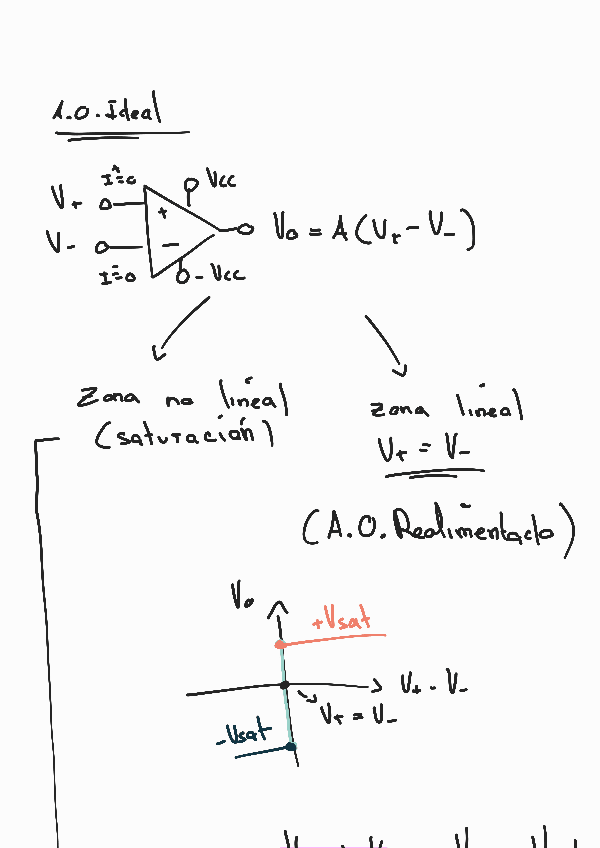 A.O. Ideal
I⁺=0
Vcc
V+
+
V-
-
Vo = A(V+ - V-)
I⁻=0
- Vcc
Zona no lineal
(saturación)
zona lineal
V+ = V-
(A.O. Realimentado)
Vo
+Vsat
V+ - V-
V+ = V-
-Vsat